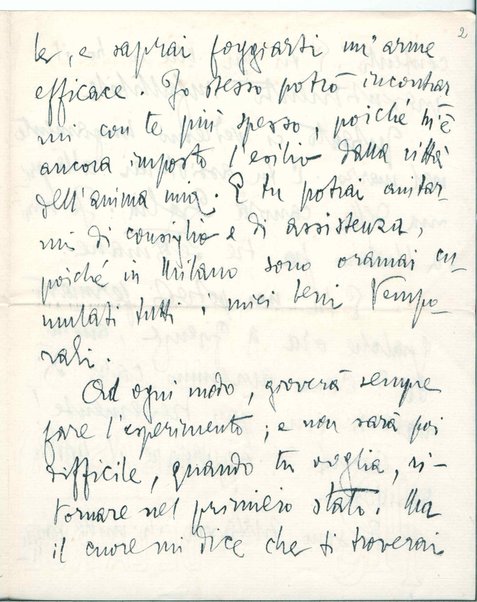 2
le, e saprai foggiarti un'arme
efficace. Io stesso potrò incontrar
mi con te più spesso, poiché m'è
ancora imposto l'esilio dalla città
dell'anima mia. E tu potrai aiutar-
mi di consiglio e di assistenza,
poiché in Milano sono oramai cu-
mulati tutti i miei beni tempo-
rali.
Ad ogni modo, gioverà sempre
fare l'esperimento; e non sarà poi
difficile, quando tu voglia, ri-
tornare nel primiero stato. Ma
il cuore mi dice che ti troverai